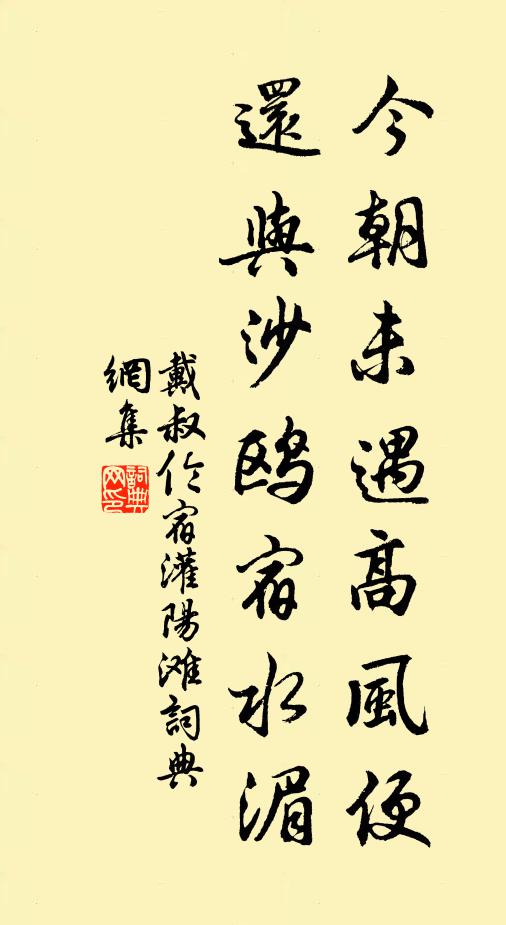 今朝未遇高風便
還與沙鸥宿水湄
戴叔伦宿灌陽滩詞典
網集
詞典网印